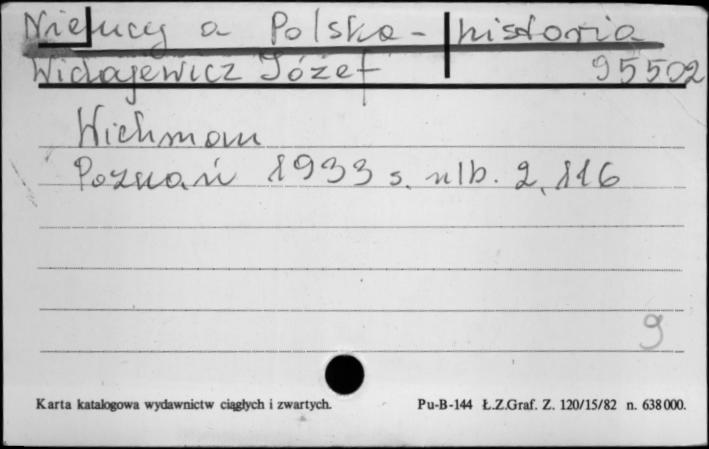 Niemcy a Polska - historia
Widajewicz Józef 95502
Wichman
Poznań 1933 s. nlb. 2, 116
9
Karta katalogowa wydawnictw ciągłych i zwartych. Pu-B-144 Ł.Z.Graf. Z. 120/15/82 n. 638000.